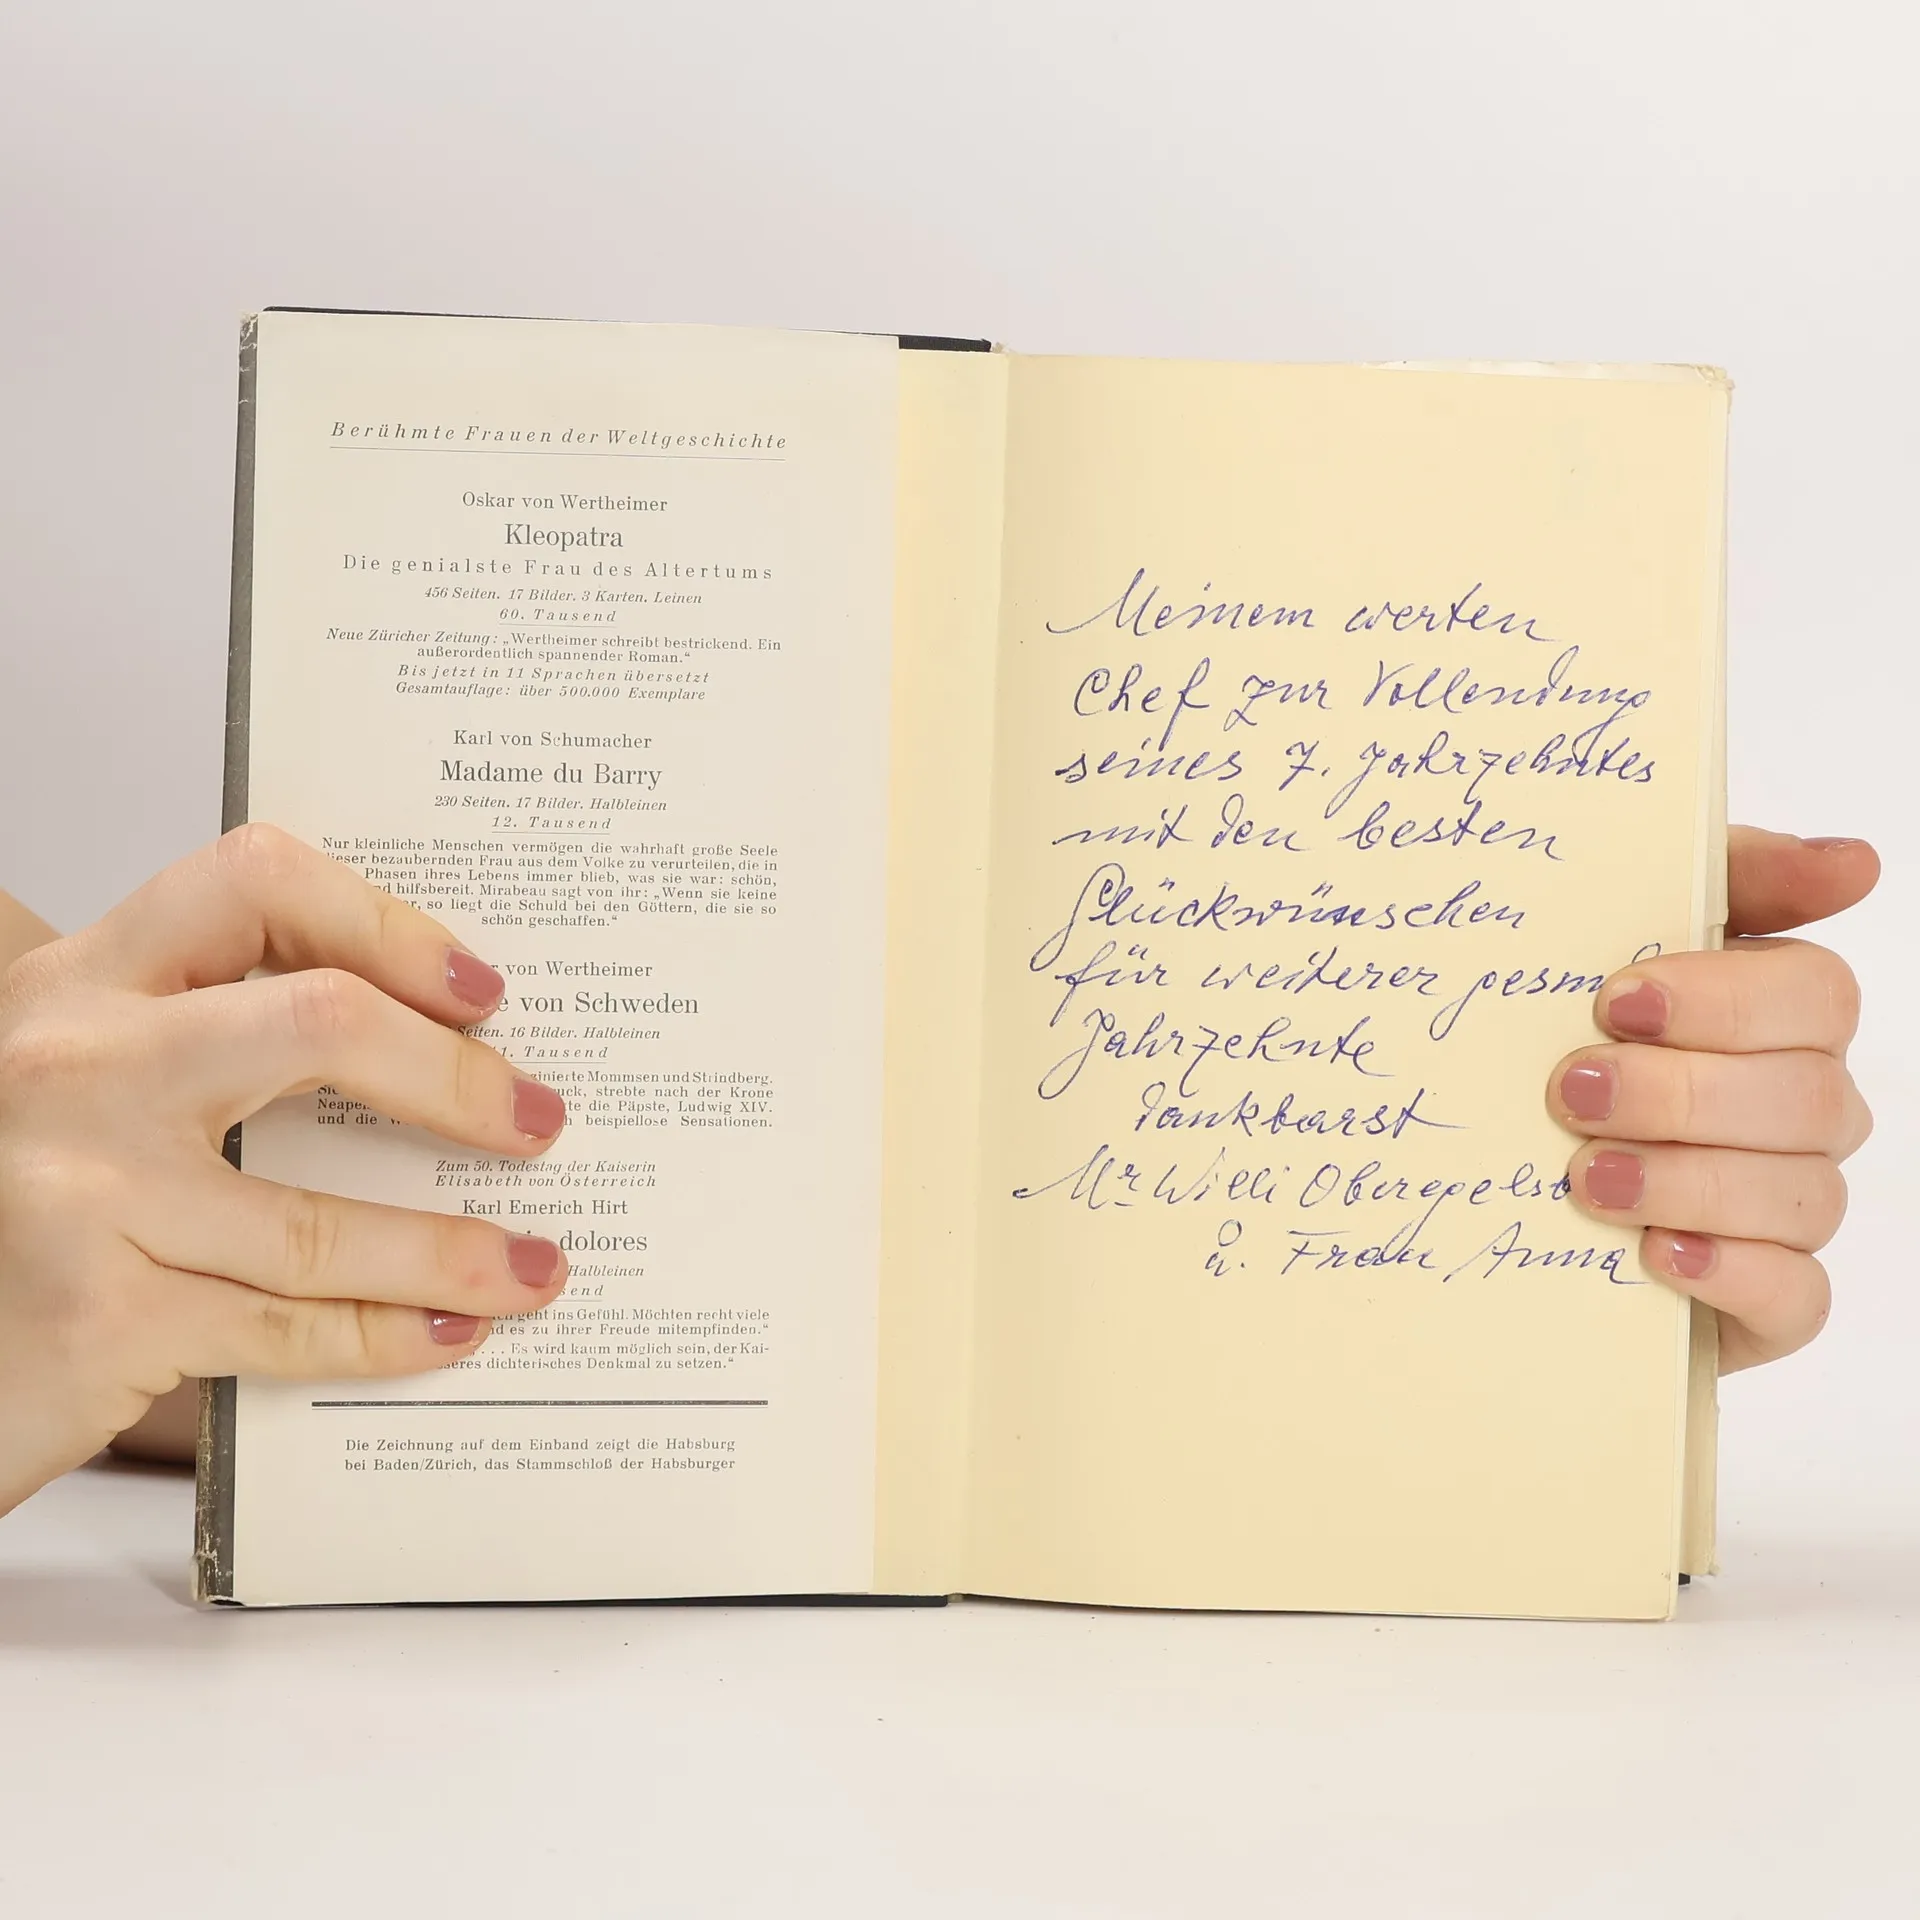 Berühmte Frauen der Weltgeschichte
Oskar von Wertheimer
Kleopatra
Die genialste Frau des Altertums
456 Seiten. 17 Bilder. 3 Karten. Leinen
60. Tausend
Neue Züricher Zeitung: „Wertheimer schreibt bestrickend. Ein
außerordentlich spannender Roman.“
Bis jetzt in 11 Sprachen übersetzt
Gesamtauflage: über 500.000 Exemplare
Karl von Schumacher
Madame du Barry
230 Seiten. 17 Bilder. Halbleinen
12. Tausend
Nur kleinliche Menschen vermögen die wahrhaft große Seele
dieser bezaubernden Frau aus dem Volke zu verurteilen, die in
Phasen ihres Lebens immer blieb, was sie war: schön,
hilfsbereit. Mirabeau sagt von ihr: „Wenn sie keine
so liegt die Schuld bei den Göttern, die sie so
schön geschaffen.“
von Wertheimer
von Schweden
Seiten. 16 Bilder. Halbleinen
Tausend
Mommsen und Strindberg.
strebte nach der Krone
die Päpste, Ludwig XIV.
und die beispiellose Sensationen.
Zum 50. Todestag der Kaiserin
Elisabeth von Österreich
Karl Emerich Hirt
dolores
Halbleinen
geht ins Gefühl. Möchten recht viele
es zu ihrer Freude mitempfinden.“
. . . Es wird kaum möglich sein, der Kai-
dichterisches Denkmal zu setzen.“
Die Zeichnung auf dem Einband zeigt die Habsburg
bei Baden/Zürich, das Stammschloß der Habsburger
Meinem werten
Chef zur Vollendung
seines 7. Jahrzehntes
mit den besten
Glückwünschen
für weiterer
Jahrzehnte
dankbarst
Mr Willi
u. Frau Anna